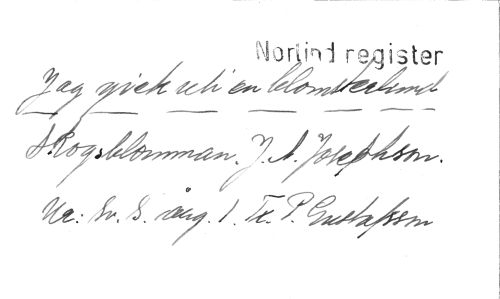 Norlind register
Jag gick uti en blomsterlund
Skogsblomman. J. A. Josephson.
Ur: Sv. S. årg. 1. Tr. P. Gustafsson